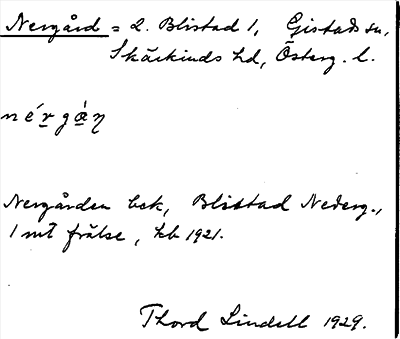 Nergård = 2. Blistad 1, Gistads sn,
Skärkinds hd, Österg. l.
Nergården bek, Blistad Nederg.,
1 mt frälse, kb 1921.
Thord Lindell 1929.